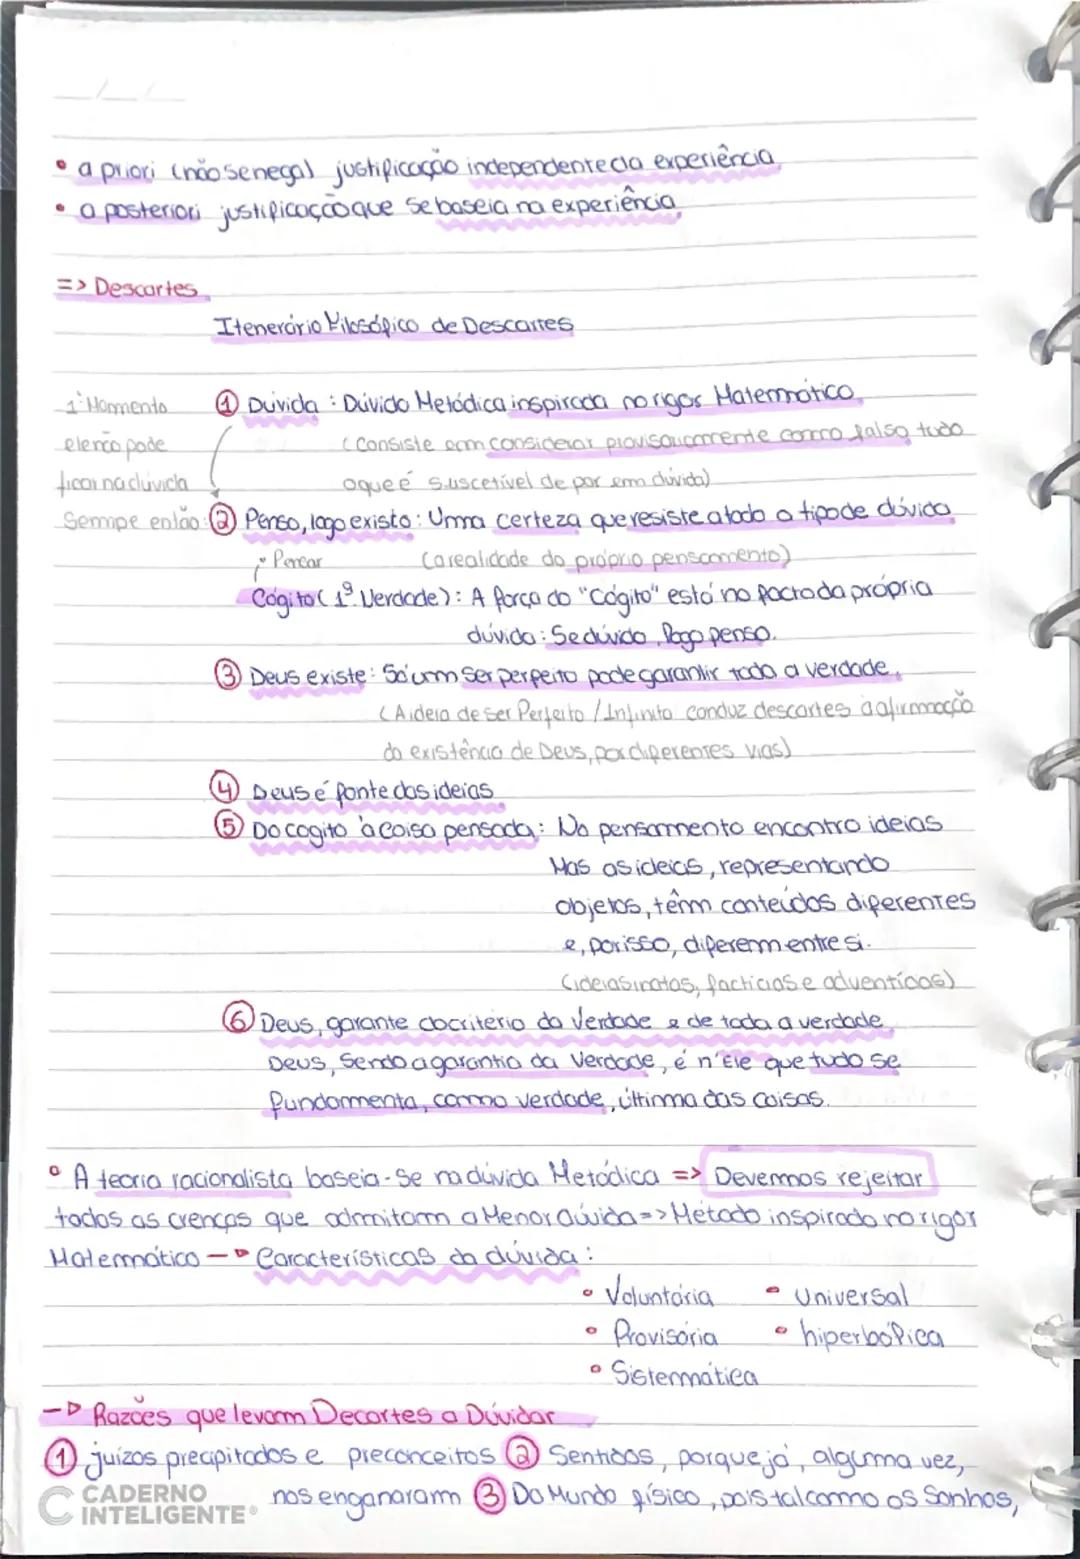 • a priori (não se nega) justificação independente da experiência
• a posteriori justificação que se baseia na experiência
=> Descartes
Itenerário Filosófico de Descartes
1º Momento
① Dúvida : Dúvida Metódica inspirada no rigor Matemático
ele não pode
(Consiste em considerar provisoriamente como falso tudo
ficar na dúvida
o que é suscetível de por em dúvida)
Sempe então:
② Penso, logo existo : Uma certeza que resiste a todo o tipo de dúvida
• Pensar
(a realidade do próprio pensamento)
Cógito ( 1ª. Verdade) : A força do "Cógito" está no facto da própria
dúvida : Se dúvido, logo penso.
③ Deus existe : Só um Ser perfeito pode garantir toda a verdade.
(A ideia de Ser Perfeito / Infinito conduz descartes à afirmação
da existência de Deus, por diferentes vias)
④ Deus é fonte das ideias
⑤ Do cogito à coisa pensada : No pensamento encontro ideias
Mas as ideias, representando
objetos, têm conteúdos diferentes
e, por isso, diferem entre si.
(ideias inatas, factícias e adventícias)
⑥ Deus, garante do critério da Verdade e de toda a verdade
Deus, Sendo a garantia da Verdade, é n'Ele que tudo se
fundamenta, como verdade, última das coisas.
• A teoria racionalista baseia-Se na dúvida Metódica => Devemos rejeitar
todas as crenças que admitam a Menor dúvida => Método inspirado no rigor
Matemático —▷ Características da dúvida :
• Voluntária • Universal
• Provisória • hiperbólica
• Sistemática
—▷ Razões que levam Decartes a Dúvidar
① juízos precipitados e preconceitos ② Sentidos, porque já, alguma vez,
nos enganaram ③ Do Mundo físico, pois tal como os Sonhos,
CADERNO
INTELIGENTE®